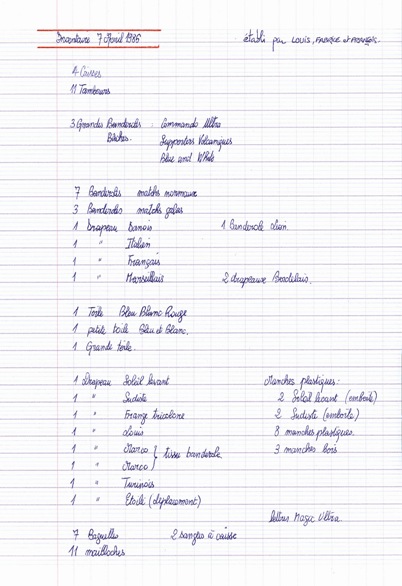 Inventaire 7 Avril 1986
établi par LOUIS, FABRICE et FRANÇOIS.
4 Caisses
11 Tambours
3 Grandes Banderoles : Commando Ultra
Bâches. Supporters Volcaniques
Blue and White
7 Banderoles matchs normaux
3 Banderoles matchs galas
1 Drapeau Danois 1 Banderole
1 " Italien
1 " Français
1 " Marseillais 2 drapeaux Brésiliens.
1 Toile Bleu Blanc Rouge
1 petite toile Bleu et Blanc.
1 Grande toile.
1 Drapeau Soleil levant Manches plastiques:
1 " Sudiste 2 Soleil levant (emboîté)
1 " Frange tricolore 2 Sudiste (emboîté)
1 " Louis 8 manches plastiques.
1 " Marco } tissu banderole 3 manches bois
1 " Marco
1 " Turinois
1 " Etoilé (déplacement)
lettres Magic Ultra.
7 Baguettes 2 sangles à caisse
11 mailloches